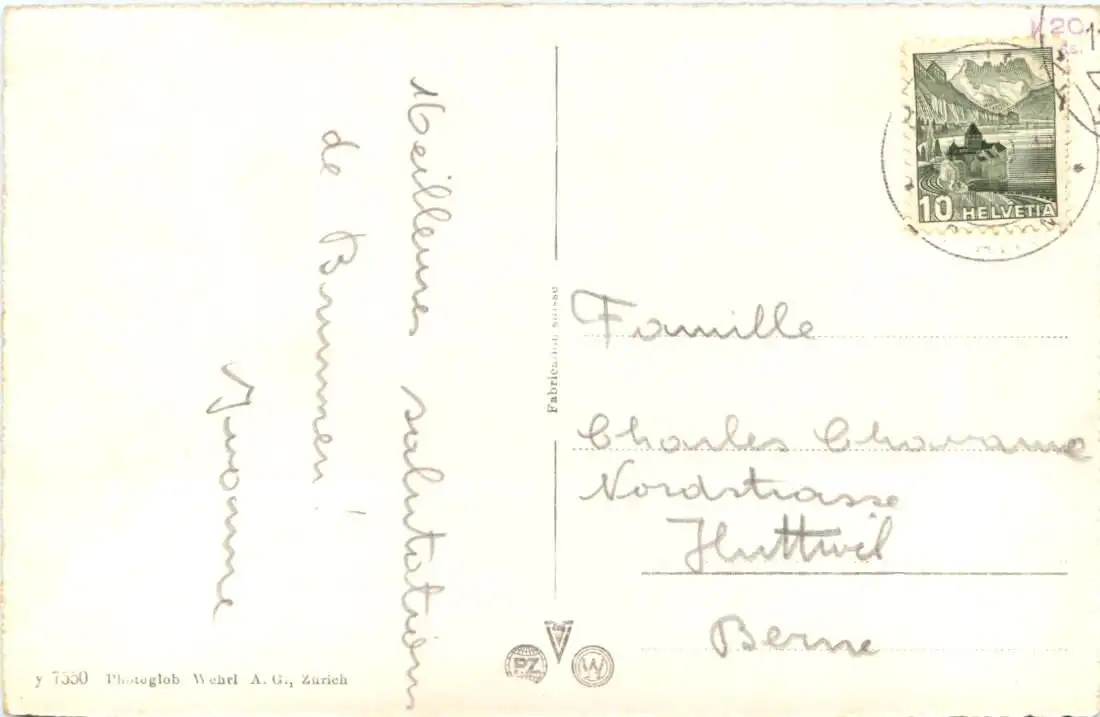 Meilleures salutations
de Brunnen!
Yvonne
Famille
Charles Chavanne
Nordstrasse
Huttwil
Berne
10 HELVETIA
Fabrication suisse
PZ
W
y 7550 Photoglob Wehrl A. G., Zürich